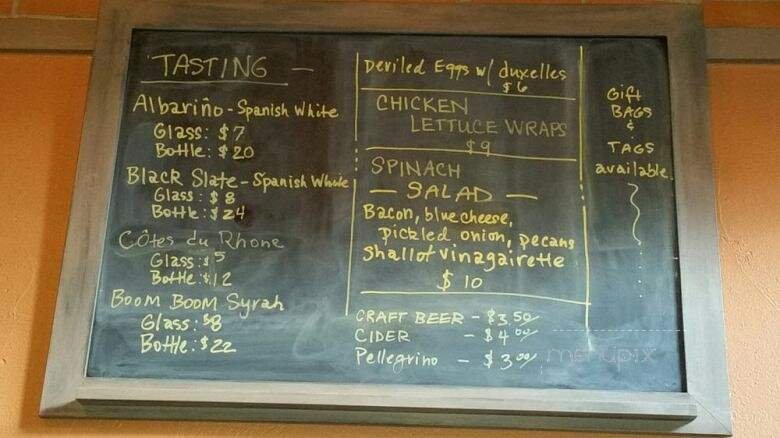 TASTING —
Albariño - Spanish White
Glass: $7
Bottle: $20
Black Slate - Spanish White
Glass: $8
Bottle: $24
Côtes du Rhone
Glass: $5
Bottle: $12
Boom Boom Syrah
Glass: $8
Bottle: $22
Deviled Eggs w/ duxelles
$6
CHICKEN
LETTUCE WRAPS
$9
SPINACH
— SALAD —
Bacon, blue cheese,
pickled onion, pecans
Shallot vinagairette
$10
CRAFT BEER - $3.50
CIDER - $4.00
Pellegrino - $3.00
Gift
BAGS
&
TAGS
available
menupix